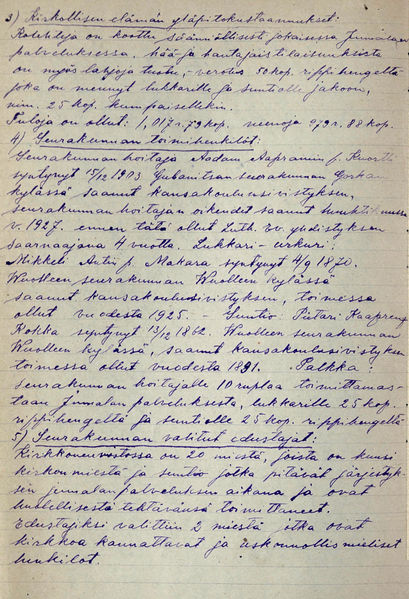 3) Kirkollisen elämän ylläpitokustannukset:
Kolehteja on koottu säännöllisesti jokaisessa Jumalan
palveluksessa. hää ja hautajaistilaisuuksista
on myös lahjoja tustu, - verotus 50 kop. rippihengeltä
joka on mennyt lukkarille ja suntiolle jakoon,
nim. 25 kop. kumpaisellekin.
Tuloja on ollut: 1,017 r. 79 kop. menoja 979 r. 88 kop.
4) Seurakunnan toimihenkilöt:
Seurakunnan hoitaja Aadam Aapramin p. Kuortti
syntynyt 15/12 1903 Gubanitsan seurakunnan
kylässä saanut kansakoulusivistyksen,
seurakunnan hoitajan oikeudet saanut
v. 1927. ennen tätä ollut Luth. Ev. yhdistyksen
saarnaajana 4 vuotta. Lukkari - urkuri:
Mikkeli Antin p. Makara syntynyt 4/9 1870.
Wuolteen seurakunnan Wuolleen kylässä
saanut kansakoulusivistyksen, toimessa
ollut vuodesta 1925. - Suntio: Pietari Kaapreng
Kokka syntynyt 13/12 1862. Wuolteen seurakunnan
Wuolleen kylässä, saanut kansakoulusivistyksen
toimessa ollut vuodesta 1891. Palkka:
Seurakunnan hoitajalle 10 ruplaa toimittamas-
taan Jumalan palveluksesta, lukkarille 25 kop.
rippihengeltä ja suntiolle 25 kop. rippihengeltä
5) Seurakunnan valitut edustajat:
Kirkkoneuvostossa on 20 miestä, joista on kuusi
kirkonmiestä ja suntio jotka pitävät järjestyk-
sen jumalanpalveluksen aikana ja ovat
huolellisesti tehtävänsä toimittaneet.
Edustajiksi valittiin 2 miestä jotka ovat
kirkkoa kannattavat ja uskonnollismieliset
henkilöt.